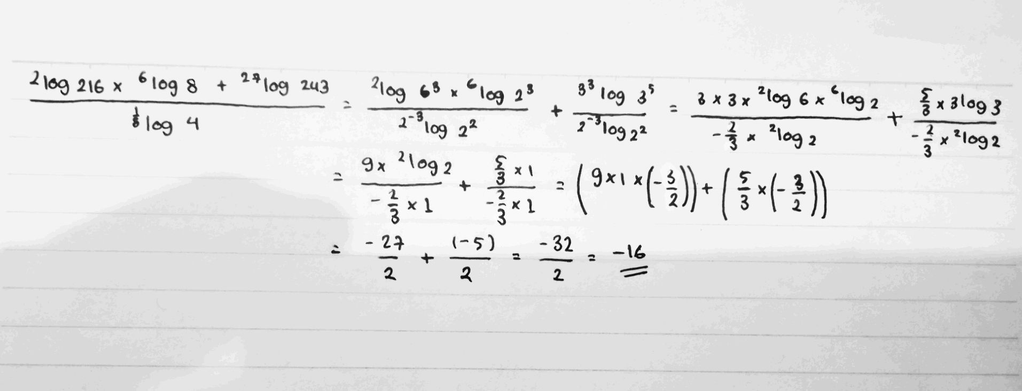 (²log 216 × ⁶log 8 + ²⁷log 243) / (^(1/8)log 4) = (²log 6³ × ⁶log 2³) / (2⁻³log 2²) + (3³log 3⁵) / (2⁻³log 2²) = (3 × 3 × ²log 6 × ⁶log 2) / (-2/3 × ²log 2) + (5/3 × 3log 3) / (-2/3 × ²log 2)
= (9 × ²log 2) / (-2/3 × 1) + (5/3 × 1) / (-2/3 × 1) = (9×1×(-3/2)) + (5/3 × (-3/2))
= -27/2 + (-5)/2 = -32/2 = -16